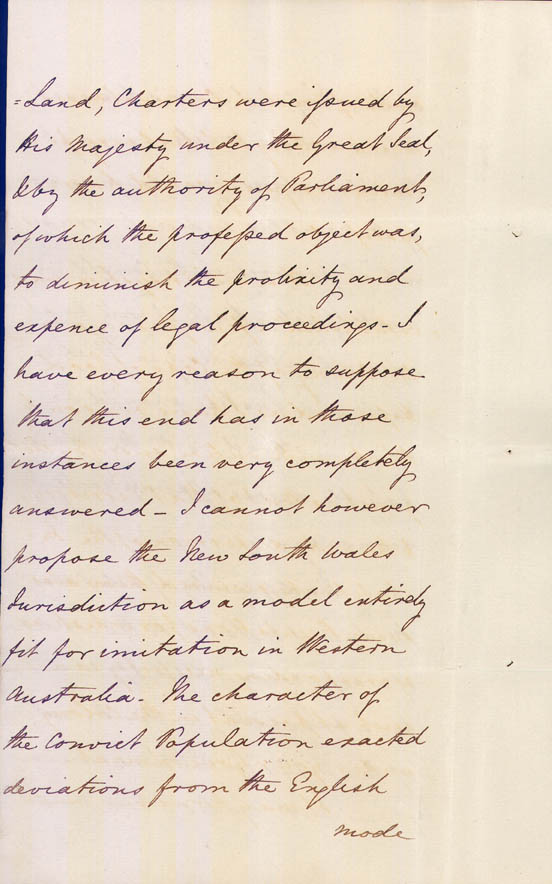 =Land, Charters were issued by
His Majesty under the Great Seal,
& by the authority of Parliament,
of which the professed object was,
to diminish the prolixity and
expence of legal proceedings - I
have every reason to suppose
that this end has in those
instances been very completely
answered - I cannot however
propose the New South Wales
Jurisdiction as a model entirely
fit for imitation in Western
Australia - The character of
the Convict Population exacted
deviations from the English
mode